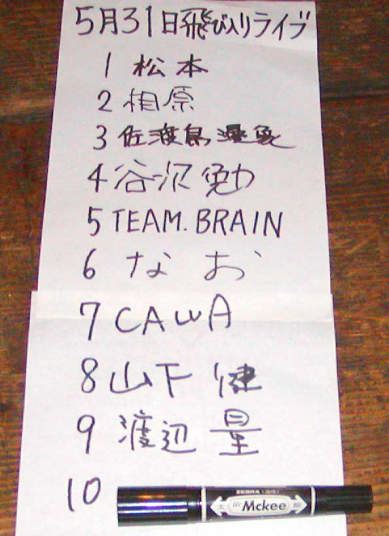 5月31日飛び入りライブ
1 松本
2 相原
3 佐渡島
4 谷沢 勉
5 TEAM. BRAIN
6 なお
7 CAWA
8 山下 健
9 渡辺 星
10
ZEBRA
Mckee